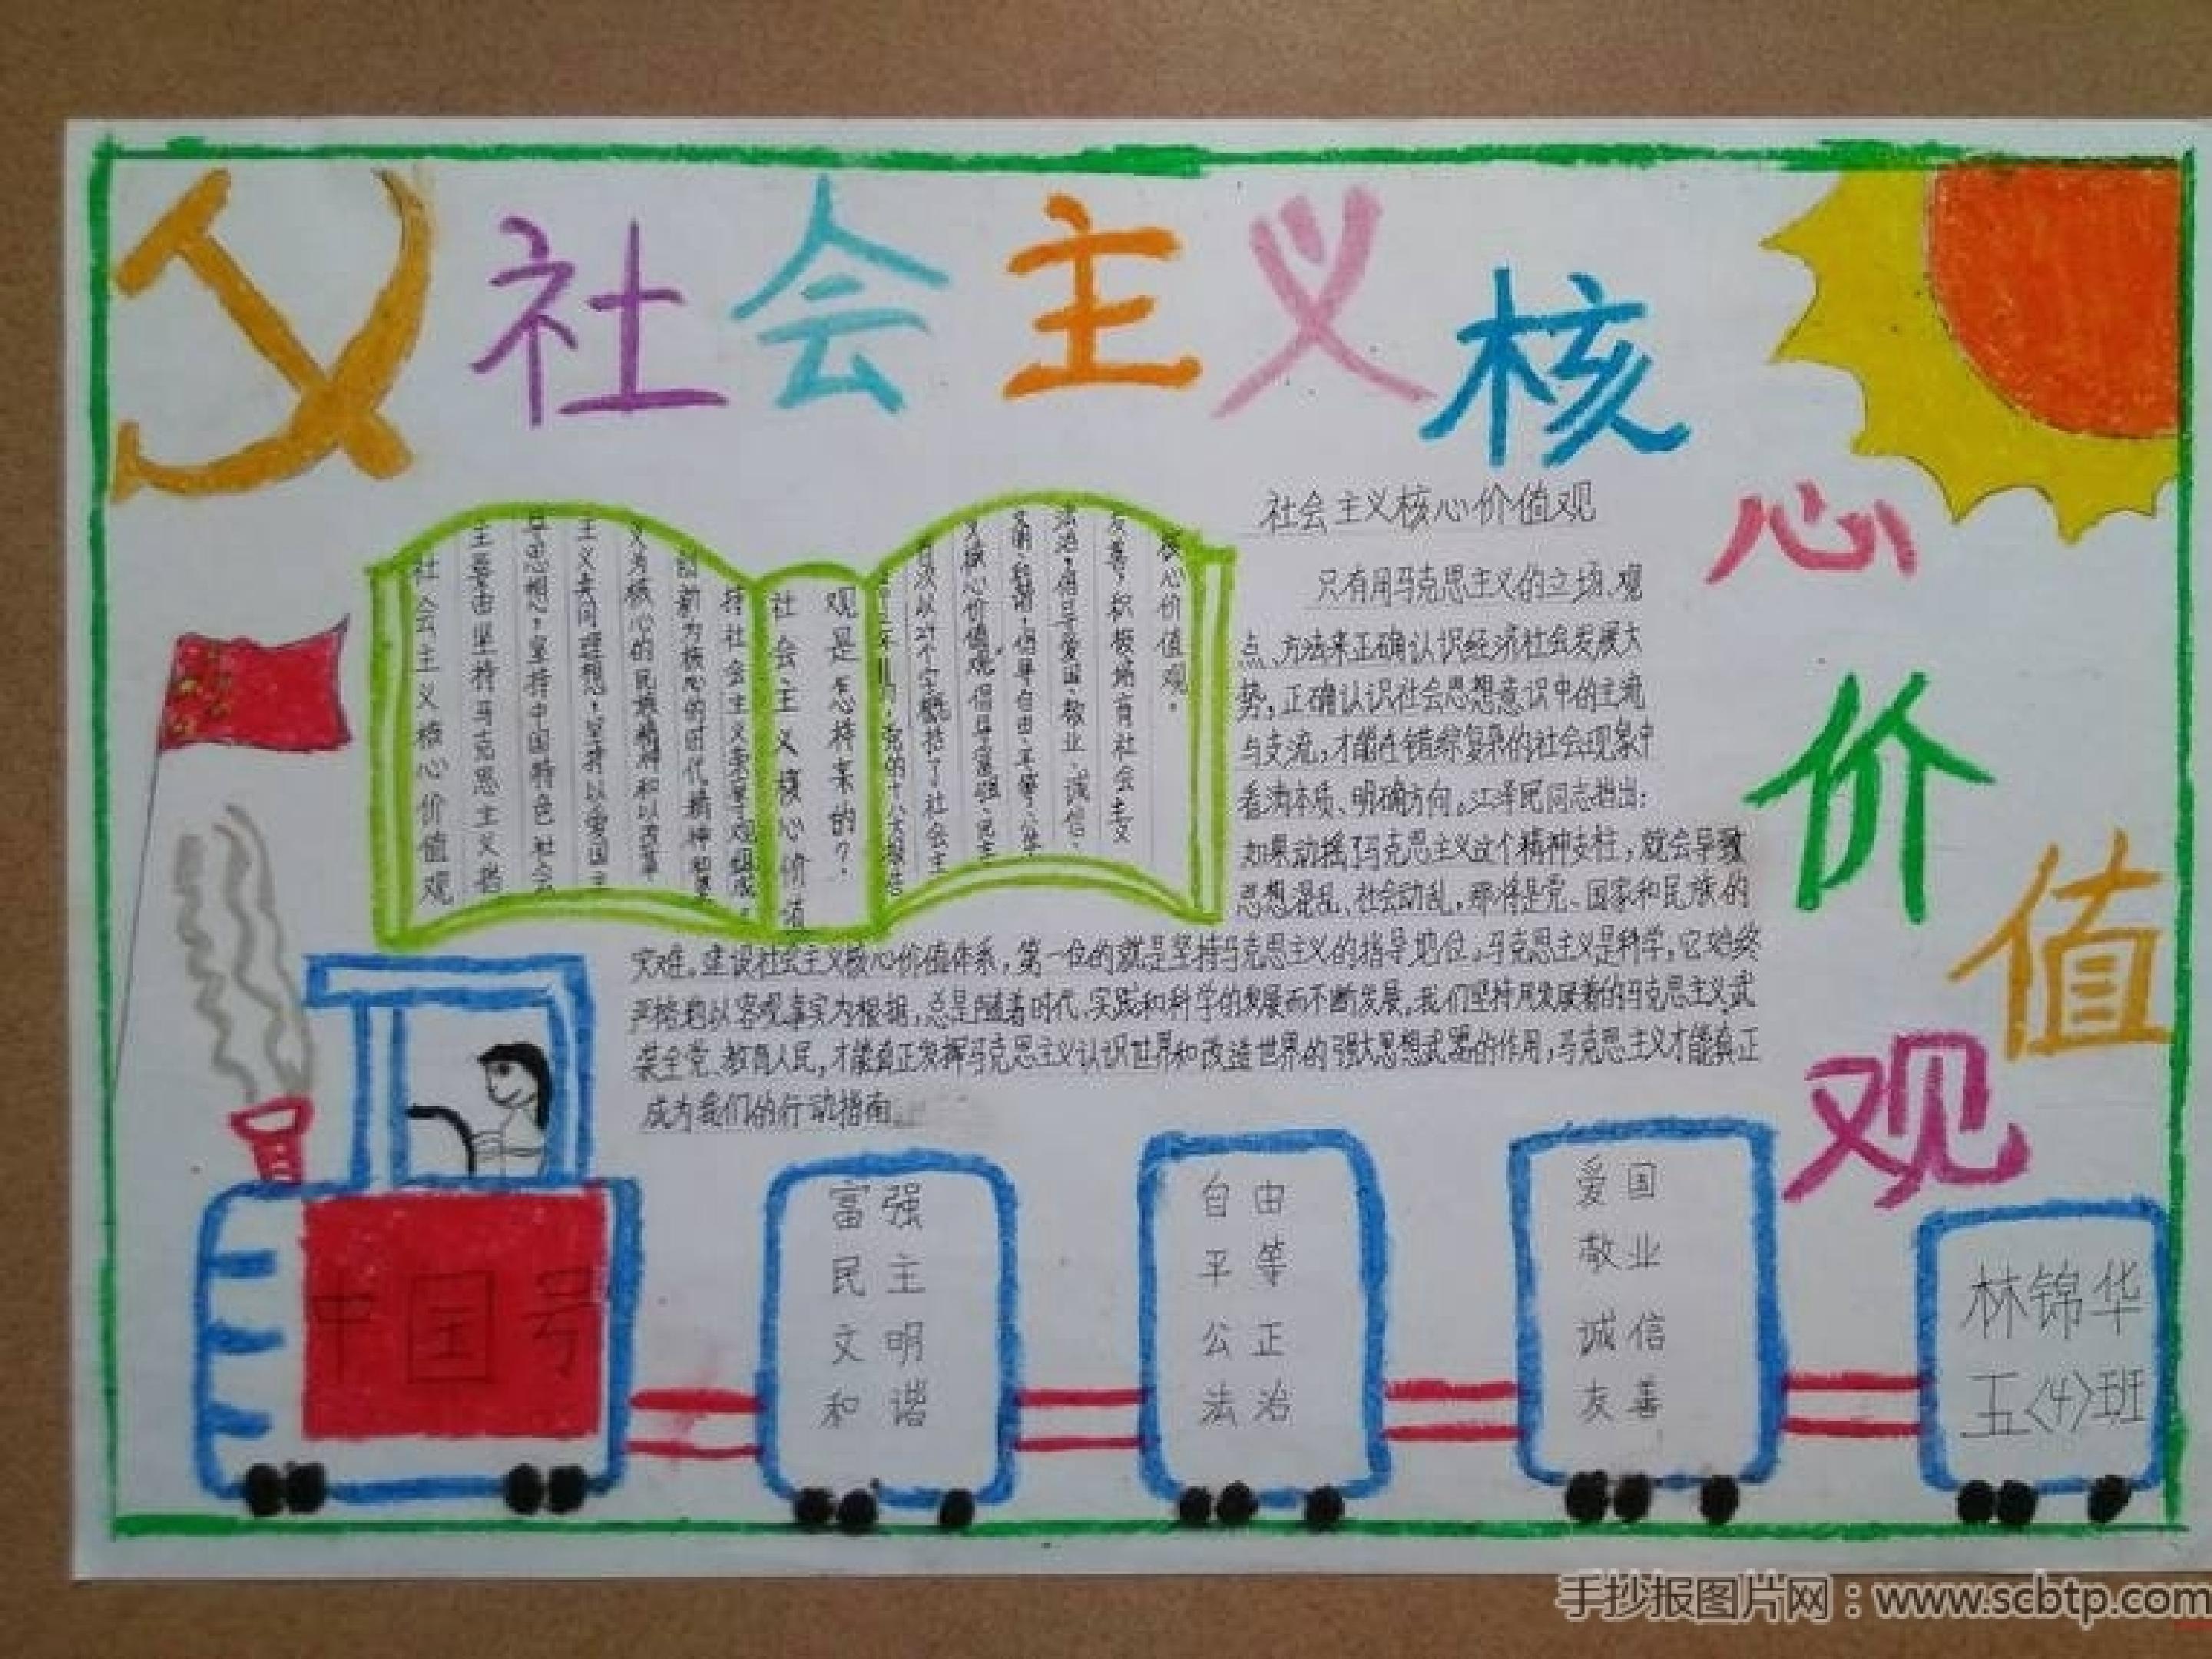 社会主义核心价值观
社会主义核心价值观
主要由坚持马克思主义指
导思想,坚持中国特色社会
主义共同理想,坚持以爱国主
义为核心的民族精神和以改革
创新为核心的时代精神
持社会主义荣辱观组成。
社会主义核心价值
观是怎样来的?
党的十八大报告
首次以24个字概括了社会主
义核心价值观。倡导富强、民主
文明、和谐,倡导自由、平等、公正
法治,倡导爱国、敬业、诚信、
友善,积极培育社会主义
核心价值观。
社会主义核心价值观
只有用马克思主义的立场、观
点、方法来正确认识经济社会发展大
势,正确认识社会思想意识中的主流
与支流,才能在错综复杂的社会现象中
看清本质、明确方向。江泽民同志指出:
如果动摇了马克思主义这个精神支柱,就会导致
思想混乱、社会动乱,那将是党、国家和民族的
灾难。建设社会主义核心价值体系,第一位的就是坚持马克思主义的指导地位。马克思主义是科学,它始终
严格的以客观事实为根据,总是随着时代、实践和科学的发展而不断发展。我们坚持用发展着的马克思主义武
装全党、教育人民,才能真正发挥马克思主义认识世界和改造世界的强大思想武器的作用,马克思主义才能真正
成为我们的行动指南。
中国号
富强
民主
文明
和谐
自由
平等
公正
法治
爱国
敬业
诚信
友善
林锦华
五〈4〉班
手抄报图片网:www.scbtp.com